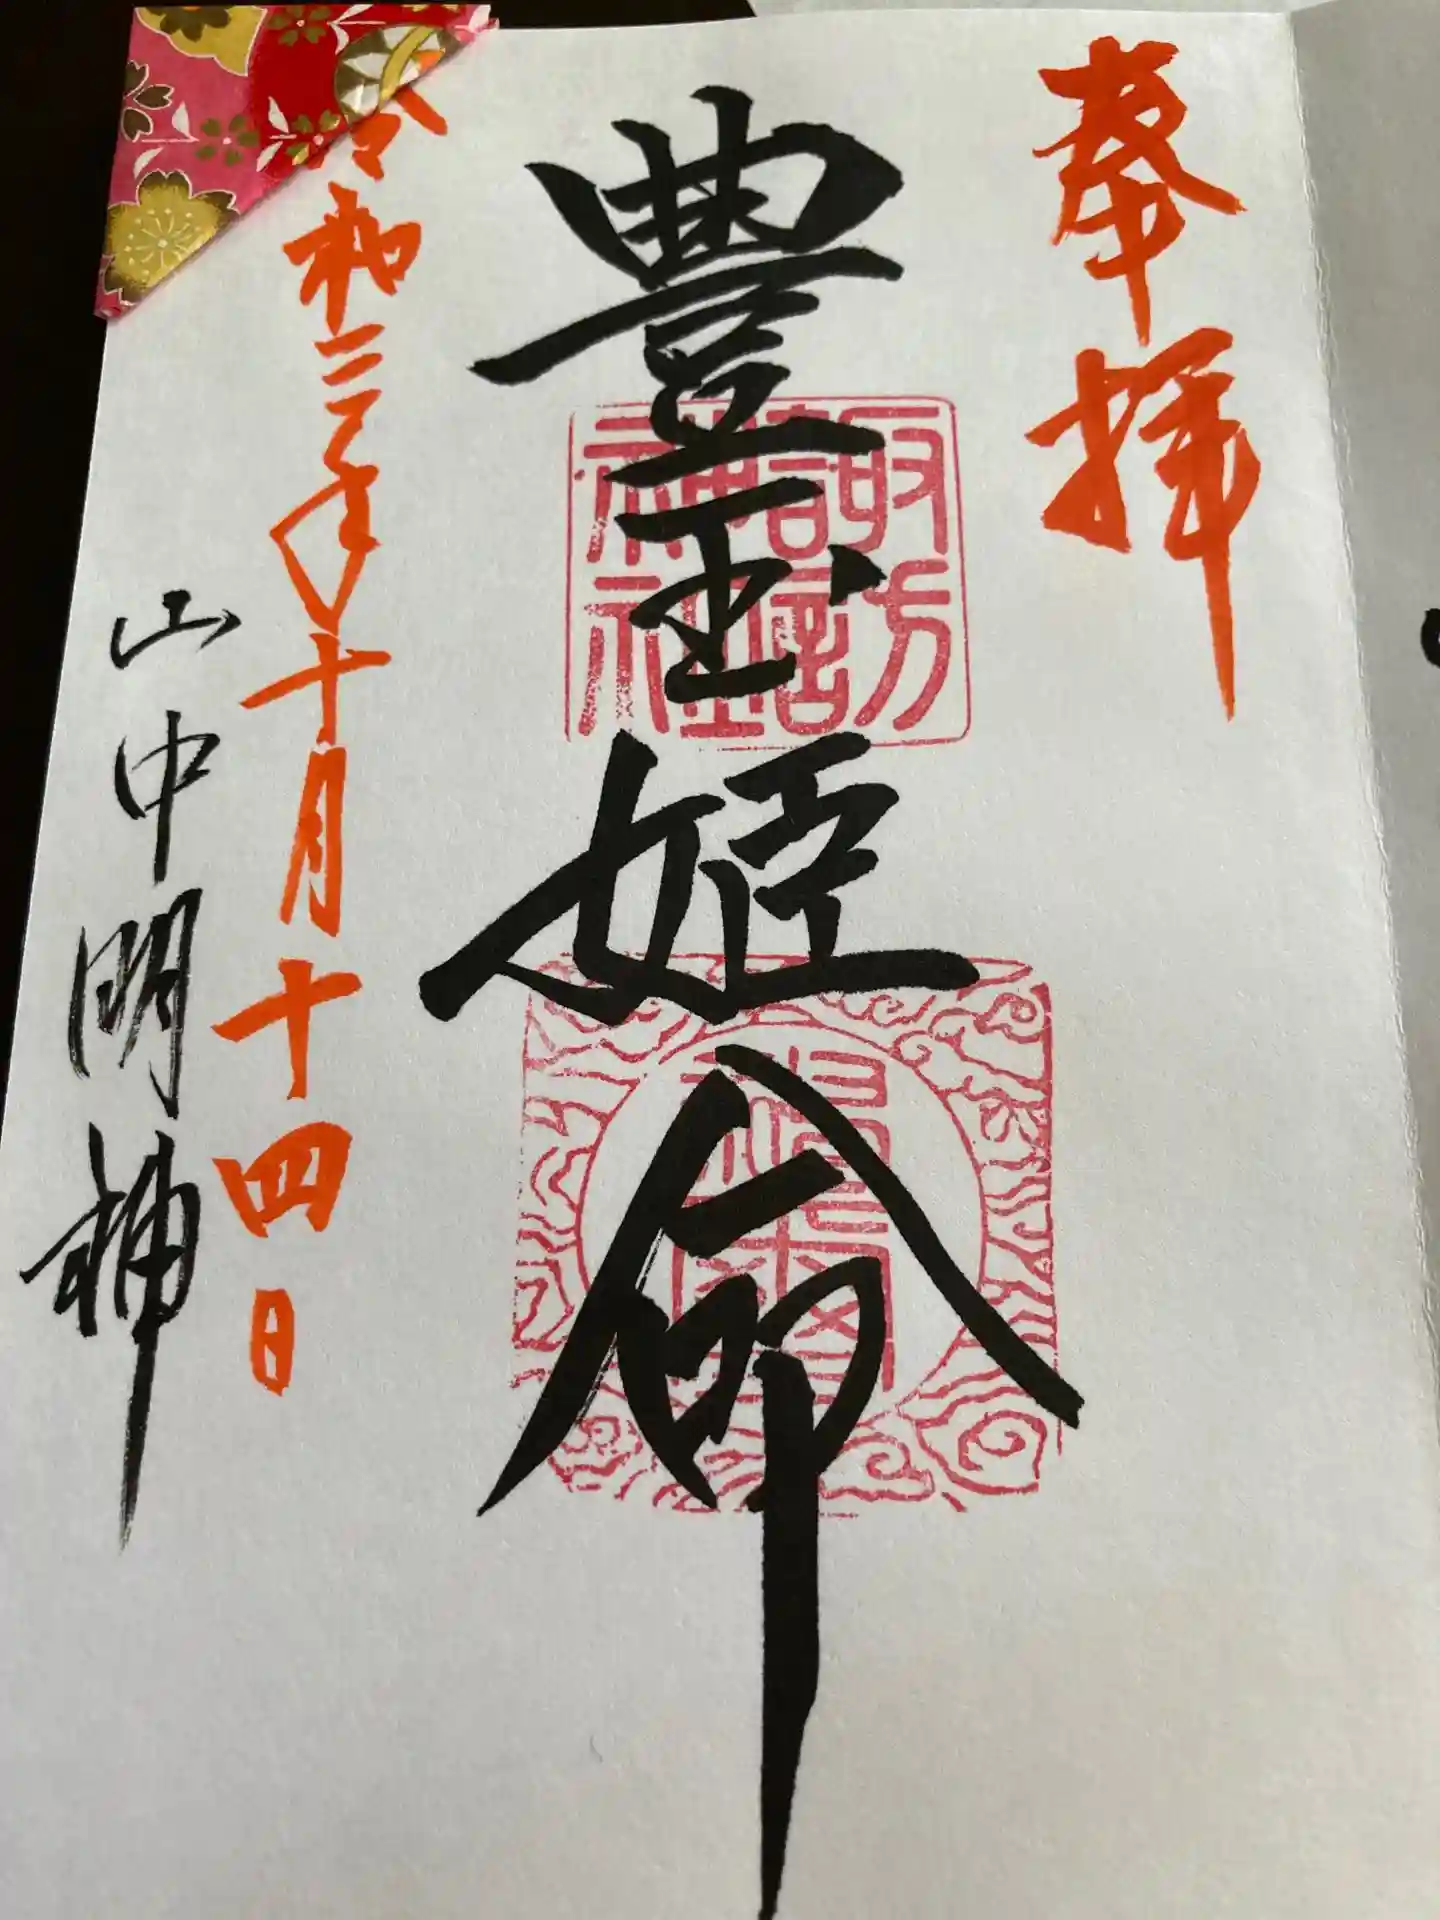 奉拝
豊玉姫命
諏訪
神社
令和二年十月十四日
山中明神